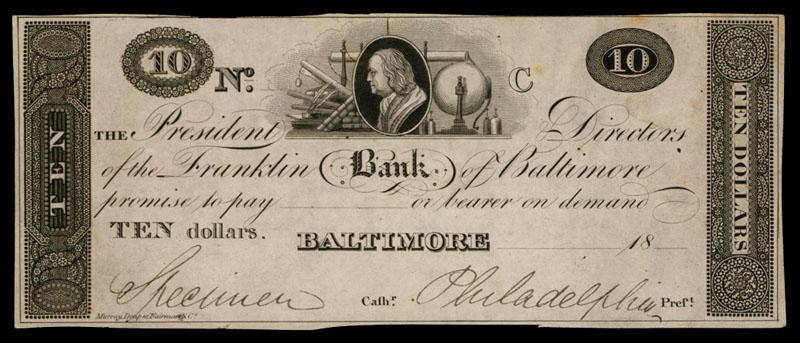 10 No. C 10
TEN
TEN DOLLARS
THE President Directors
of the Franklin Bank of Baltimore
promise to pay or bearer on demand
TEN dollars. BALTIMORE 18
Specimen Cashr. Philadelphia Prest.
Murray, Draper, Fairman & Co.